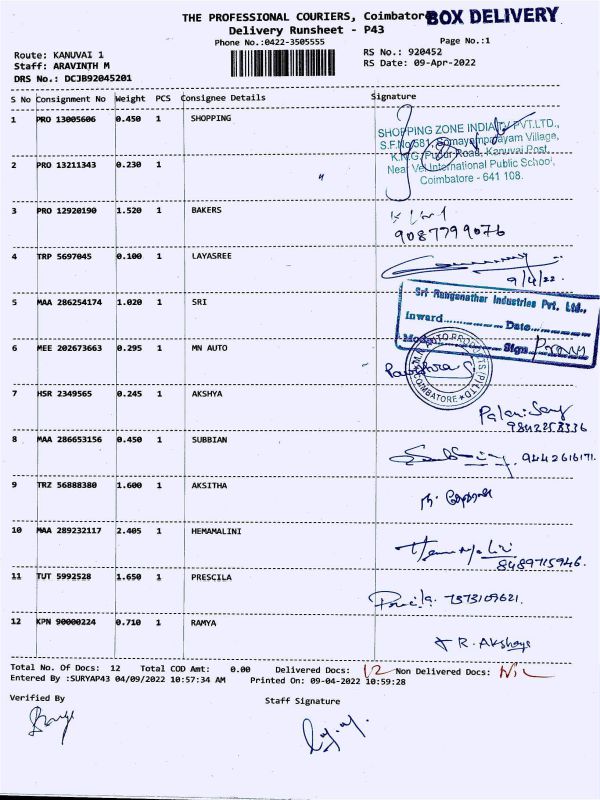 THE PROFESSIONAL COURIERS, Coimbatore
BOX DELIVERY
Delivery Runsheet - P43
Phone No.:0422-3505555
Page No.:1
Route: KANUVAI 1
RS No.: 920452
Staff: ARAVINTH M
RS Date: 09-Apr-2022
DRS No.: DCJB92045201
S No Consignment No Weight PCS Consignee Details Signature
1 PRO 13005606 0.450 1 SHOPPING
SHOPPING ZONE INDIA TV PVT.LTD.,
S.F.No.581, Somayampalayam Village,
K.N.G. Pudur Road, Kanuvai Post,
Near Vel International Public School,
Coimbatore - 641 108.
2 PRO 13211343 0.230 1 "
3 PRO 12920190 1.520 1 BAKERS
9087799076
4 TRP 5697045 0.100 1 LAYASREE
9/4/22.
5 MAA 286254174 1.020 1 SRI
Sri Ranganathar Industries Pvt. Ltd.,
Inward Date
Sign
6 MEE 202673663 0.295 1 MN AUTO
M.N. AUTO PRODUCTS (P) LTD
COIMBATORE
7 HSR 2349565 0.245 1 AKSHYA
9842258336
8 MAA 286653156 0.450 1 SUBBIAN
9442616171.
9 TRZ 56888380 1.600 1 AKSITHA
10 MAA 289232117 2.405 1 HEMAMALINI
Hemamalini
8489715946.
11 TUT 5992528 1.650 1 PRESCILA
Prescila. 7373109621.
12 KPN 90000224 0.710 1 RAMYA
R. Akshaya
Total No. Of Docs: 12 Total COD Amt: 0.00 Delivered Docs: 12 Non Delivered Docs: NiL
Entered By :SURYAP43 04/09/2022 10:57:34 AM Printed On: 09-04-2022 10:59:28
Verified By
Staff Signature